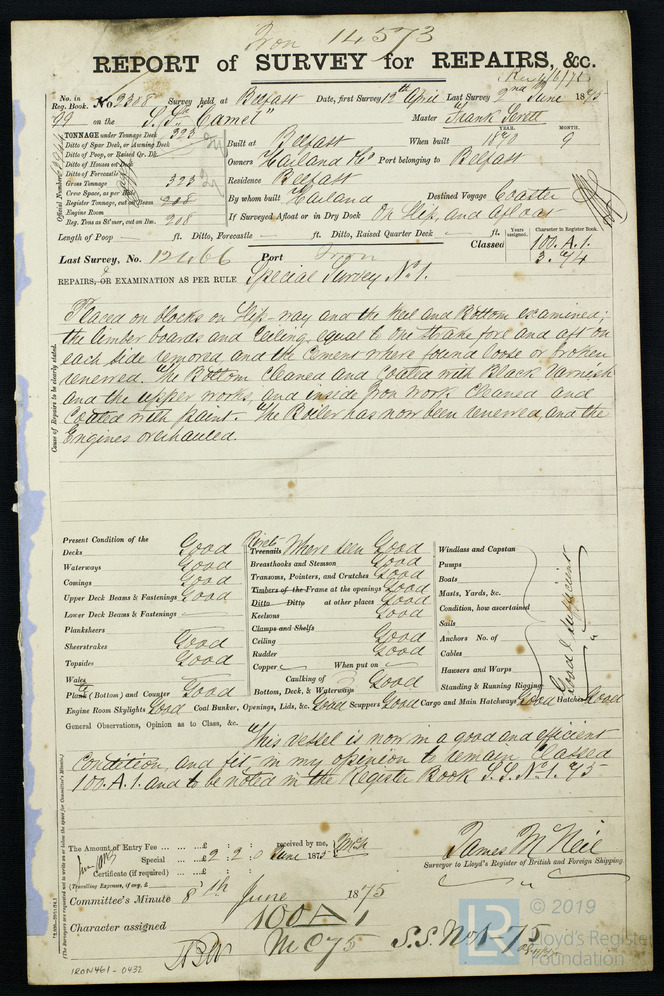 Iron 14573
REPORT of SURVEY for REPAIRS, &c.
No. in Reg. Book. No 2308 Survey held at Belfast Date, first Survey 12th April Last Survey 2nd June 1875
99 on the S.S. "Camel" Master Frank Lerett
TONNAGE under Tonnage Deck 323
Ditto of Spar Deck, or Awning Deck
Ditto of Poop, or Raised Qr. Dk.
Ditto of Houses on Deck
Ditto of Forecastle
Gross Tonnage 323
Crew Space, as per Rule
Register Tonnage, cut on Beam 208
Engine Room
Reg. Tons as St'mer, cut on Bm. 208
Official Number
Built at Belfast When built YEAR. 1870 MONTH. 9
Owners Harland & Co Port belonging to Belfast
Residence Belfast
By whom built Harland Destined Voyage Coaster
If Surveyed Afloat or in Dry Dock On Slip, and afloat
Length of Poop ft. Ditto, Forecastle ft. Ditto, Raised Quarter Deck ft.
Years assigned. Character to Register Book.
Classed 100. A. 1.
3. 74
Last Survey, No. 12666 Port Iron
REPAIRS, OR EXAMINATION AS PER RULE Special Survey No 1.
Cause of Repairs to be clearly stated.
Placed on blocks on Slip-way and the Keel and Bottom examined;
the limber boards and Ceiling equal to one strake fore and aft on
each side removed and the Cement where found loose or broken
renewed. The Bottom Cleaned and Coated with Black Varnish
and the upper works, and inside Iron Work Cleaned and
Coated with paint. The Boiler has now been renewed, and the
Engines overhauled.
Present Condition of the
Decks Good
Waterways Good
Comings Good
Upper Deck Beams & Fastenings Good
Lower Deck Beams & Fastenings
Planksheers
Sheerstrakes Good
Topsides Good
Wales
Plank (Bottom) and Counter Good
Rivets
Treenails Where seen Good
Breasthooks and Stemson Good
Transoms, Pointers, and Crutches Good
Timbers of the Frame at the openings Good
Ditto Ditto at other places Good
Keelsons Good
Clamps and Shelfs
Ceiling Good
Rudder Good
Copper When put on
Caulking of Bottom, Deck, & Waterways Good
Windlass and Capstan
Pumps
Boats
Masts, Yards, &c.
Condition, how ascertained
Sails
Anchors No. of
Cables
Hawsers and Warps
Standing & Running Rigging
Good & sufficient
Engine Room Skylights Good Coal Bunker, Openings, Lids, &c. Good Scuppers Good Cargo and Main Hatchways Good Hatches Good
General Observations, Opinion as to Class, &c.
This vessel is now in a good and efficient
Condition, and fit in my opinion to remain Classed
100. A. 1. and to be noted in the Register Book S.S. No 1. 75
The Amount of Entry Fee £ : : received by me,
Special £2 : 2 : 0 June 1875 McN
Certificate (if required) £ : :
(Travelling Expenses, if any, £
James McNeil
Surveyor to Lloyd's Register of British and Foreign Shipping.
Committee's Minute 8th June 1875
Character assigned 100 A 1
MC 75 S.S. No 1 75
IRON461-0432
LR
© 2019
Lloyd's Register
Foundation